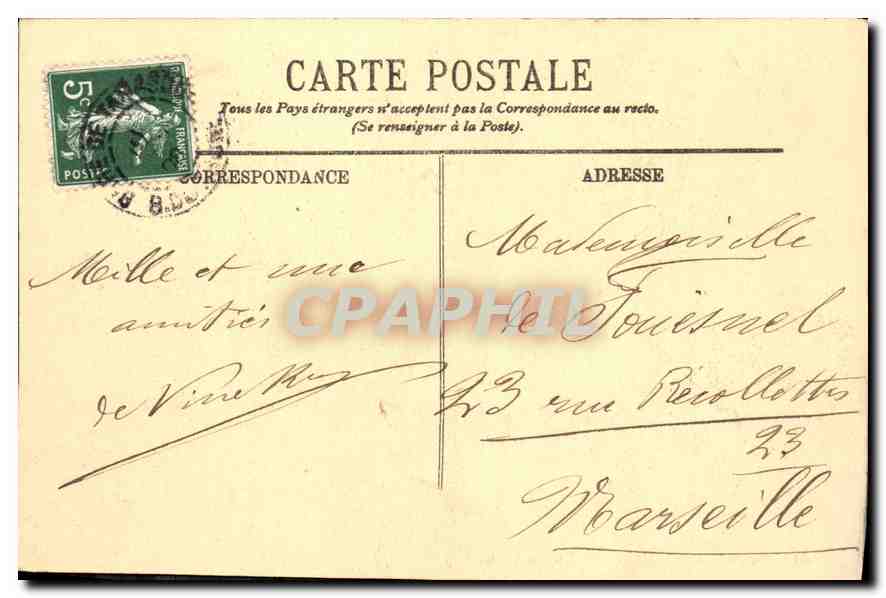 CARTE POSTALE
Tous les Pays étrangers n'acceptent pas la Correspondance au recto.
(Se renseigner à la Poste).
CORRESPONDANCE
ADRESSE
5c
POSTES
FRANÇAISE
Mille et une
amitiés
de
Mademoiselle
de Fouësnel
23 rue Récollettes
23
Marseille
CPAPHIL